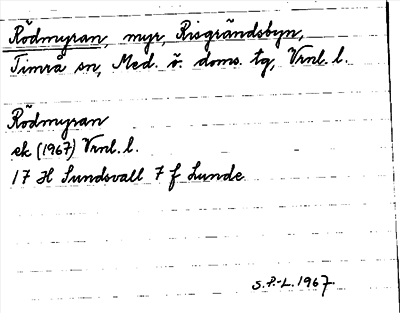 Rödmyran, myr, Risgrändsbyn,
Timrå sn, Med. ö. doms. tg, Vrnl. l.
Rödmyran
ek (1967) Vrnl. l.
17 H Sundsvall 7 f Lunde
S.P.-L. 1967